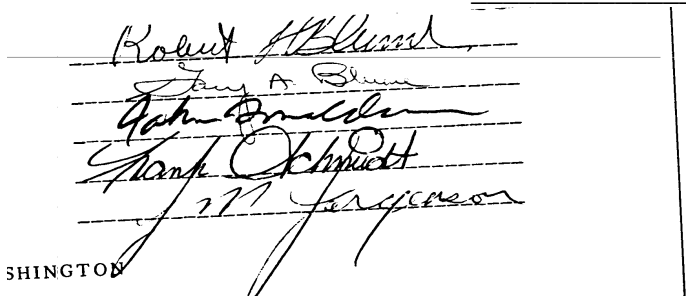 Robert H Blume
Gary A. Blume
John Donaldson
Frank Schmidt
J M Fergerson
SHINGTON